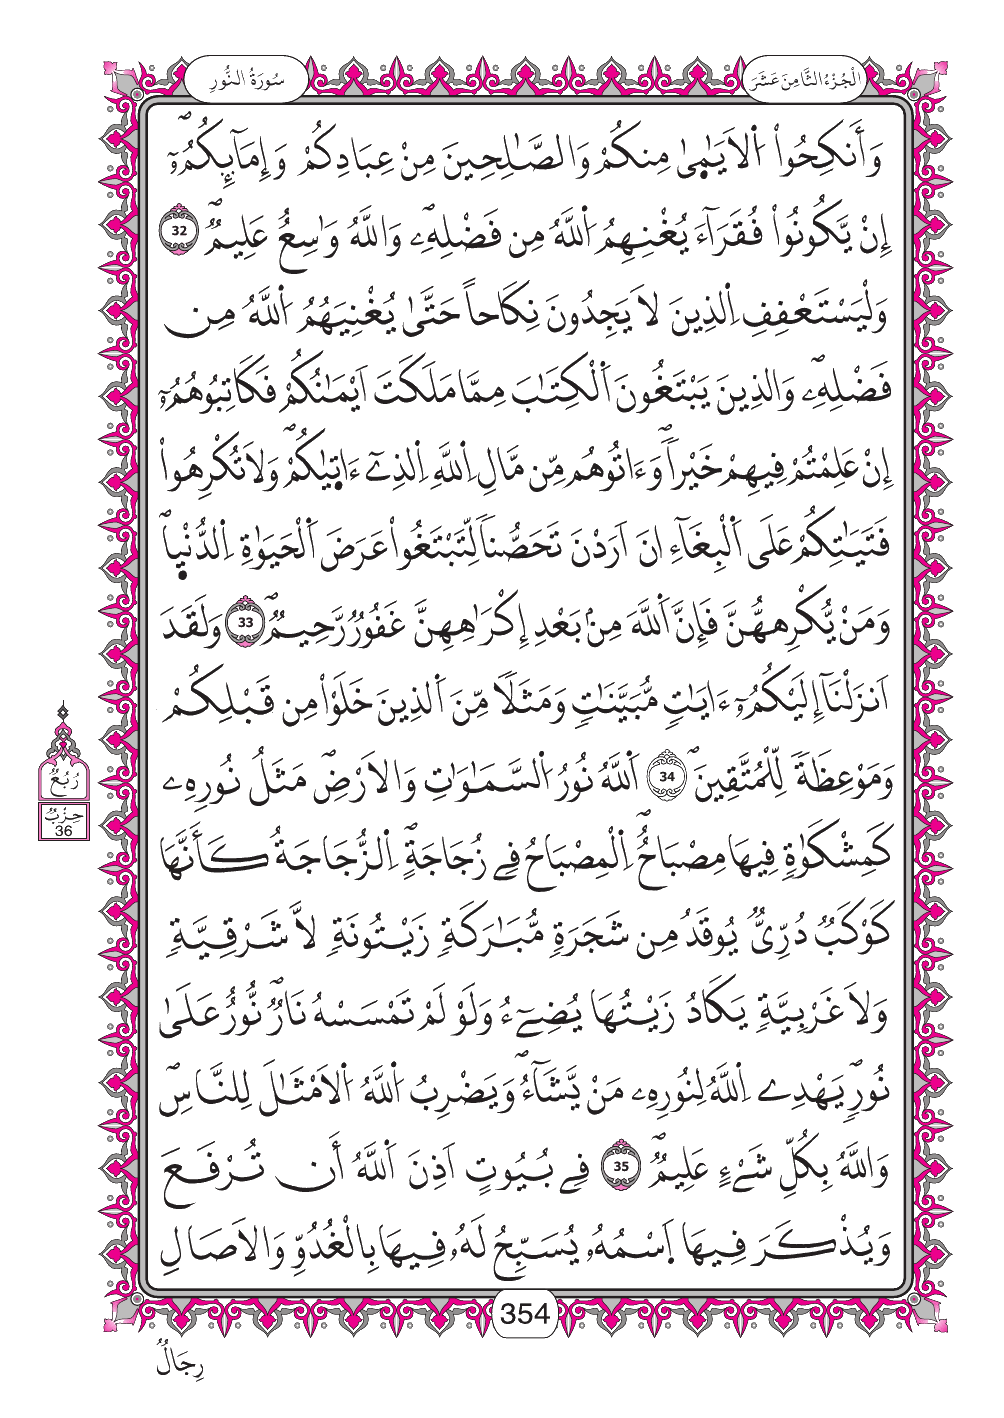 سُورَةُ النُّورِ
اَلْجُزْءُ الثَّامِنَ عَشَرَ
وَأَنكِحُواْ اُ۬لَايَٰم۪ىٰ مِنكُمْ وَالصَّٰلِحِينَ مِنْ عِبَادِكُمْ وَإِمَآئِكُمُۥٓۖ
إِنْ يَّكُونُواْ فُقَرَآءَ يُغْنِهِمُ اُ۬للَّهُ مِن فَضْلِهِۦۖ وَاللَّهُ وَٰسِعٌ عَلِيمٞۖ 32
وَلْيَسْتَعْفِفِ اِ۬لذِينَ لَا يَجِدُونَ نِكَاحاً حَتَّىٰ يُغْنِيَهُمُ اُ۬للَّهُ مِن
فَضْلِهِۦۖ وَالذِينَ يَبْتَغُونَ اَ۬لْكِتَٰبَ مِمَّا مَلَكَتَ اَيْمَٰنُكُمْ فَكَاتِبُوهُمُۥٓ
إِنْ عَلِمْتُمْ فِيهِمْ خَيْراٗۖ وَءَاتُوهُم مِّن مَّالِ اِ۬للَّهِ اِ۬لذِےٓ ءَات۪يٰكُمْۖ وَلَا تُكْرِهُواْ
فَتَيَٰتِكُمْ عَلَى اَ۬لْبِغَآءِ انَ اَرَدْنَ تَحَصُّناٗ لِّتَبْتَغُواْ عَرَضَ اَ۬لْحَيَوٰةِ اِ۬لدُّنْي۪اۖ
وَمَنْ يُّكْرِههُّنَّ فَإِنَّ اَ۬للَّهَ مِنۢ بَعْدِ إِكْرَٰهِهِنَّ غَفُورٞ رَّحِيمٞۖ 33 وَلَقَدَ
اَنزَلْنَآ إِلَيْكُمُۥٓ ءَايَٰتٖ مُّبَيَّنَٰتٖ وَمَثَلاٗ مِّنَ اَ۬لذِينَ خَلَوْاْ مِن قَبْلِكُمْ
وَمَوْعِظَةٗ لِّلْمُتَّقِينَۖ 34 اَ۬للَّهُ نُورُ اُ۬لسَّمَٰوَٰتِ وَالَارْضِۖ مَثَلُ نُورِهِۦ
كَمِشْكَوٰةٖ فِيهَا مِصْبَاحٌۖ اِ۬لْمِصْبَاحُ فِے زُجَاجَةٍۖ اِ۬لزُّجَاجَةُ كَأَنَّهَا
كَوْكَبٞ دُرِّيّٞ يُوقَدُ مِن شَجَرَةٖ مُّبَٰرَكَةٖ زَيْتُونَةٖ لَّا شَرْقِيَّةٖ
وَلَا غَرْبِيَّةٖ يَكَادُ زَيْتُهَا يُضِےٓءُ وَلَوْ لَمْ تَمْسَسْهُ نَارٞۖ نُّورٌ عَلَىٰ
نُورٖۖ يَهْدِے اِ۬للَّهُ لِنُورِهِۦ مَنْ يَّشَآءُۖ وَيَضْرِبُ اُ۬للَّهُ اُ۬لَامْثَٰلَ لِلنَّاسِۖ
وَاللَّهُ بِكُلِّ شَےْءٍ عَلِيمٞۖ 35 فِے بُيُوتٍ اَذِنَ اَ۬للَّهُ أَن تُرْفَعَ
وَيُذْكَرَ فِيهَا اَ۪سْمُهُۥ يُسَبِّحُ لَهُۥ فِيهَا بِالْغُدُوِّ وَالَاصَالِ
رُبُعُ
حِزْبٌ
36
354
رِجَالٞ